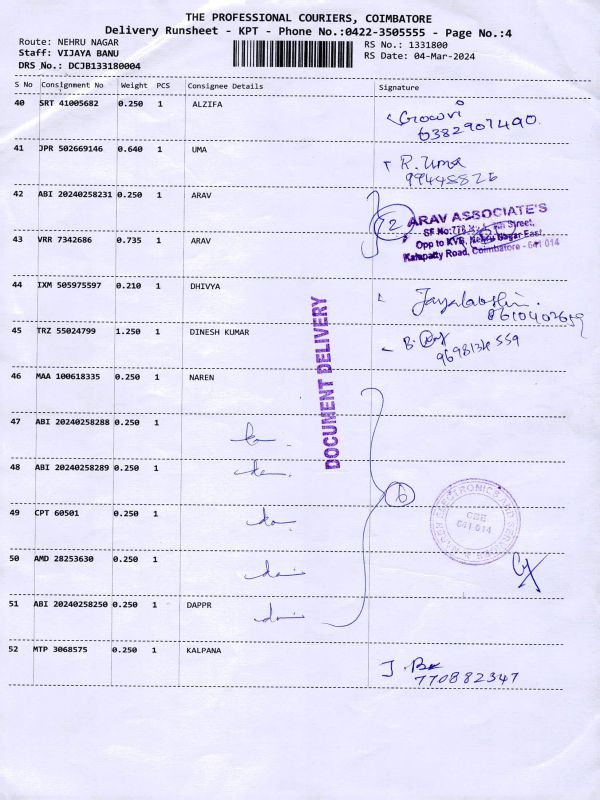 THE PROFESSIONAL COURIERS, COIMBATORE
Delivery Runsheet - KPT - Phone No.:0422-3505555 - Page No.:4
Route: NEHRU NAGAR
RS No.: 1331800
Staff: VIJAYA BANU
RS Date: 04-Mar-2024
DRS No.: DCJB133180004
S No Consignment No Weight PCS Consignee Details Signature
40 SRT 41005682 0.250 1 ALZIFA
Gowri
6382907490.
41 JPR 502669146 0.640 1 UMA
R. Uma
99445826
42 ABI 20240258231 0.250 1 ARAV
2
ARAV ASSOCIATE'S
SF No:778 Street,
Opp to KVB, Nehru Nagar East,
Kalapatty Road, Coimbatore - 641 014
43 VRR 7342686 0.735 1 ARAV
44 IXM 505975597 0.210 1 DHIVYA
8610402659
45 TRZ 55024799 1.250 1 DINESH KUMAR
9698134559
DOCUMENT DELIVERY
46 MAA 100618335 0.250 1 NAREN
47 ABI 20240258288 0.250 1
48 ABI 20240258289 0.250 1
6
49 CPT 60501 0.250 1
CBE
641 014
50 AMD 28253630 0.250 1
51 ABI 20240258250 0.250 1 DAPPR
52 MTP 3068575 0.250 1 KALPANA
770882347